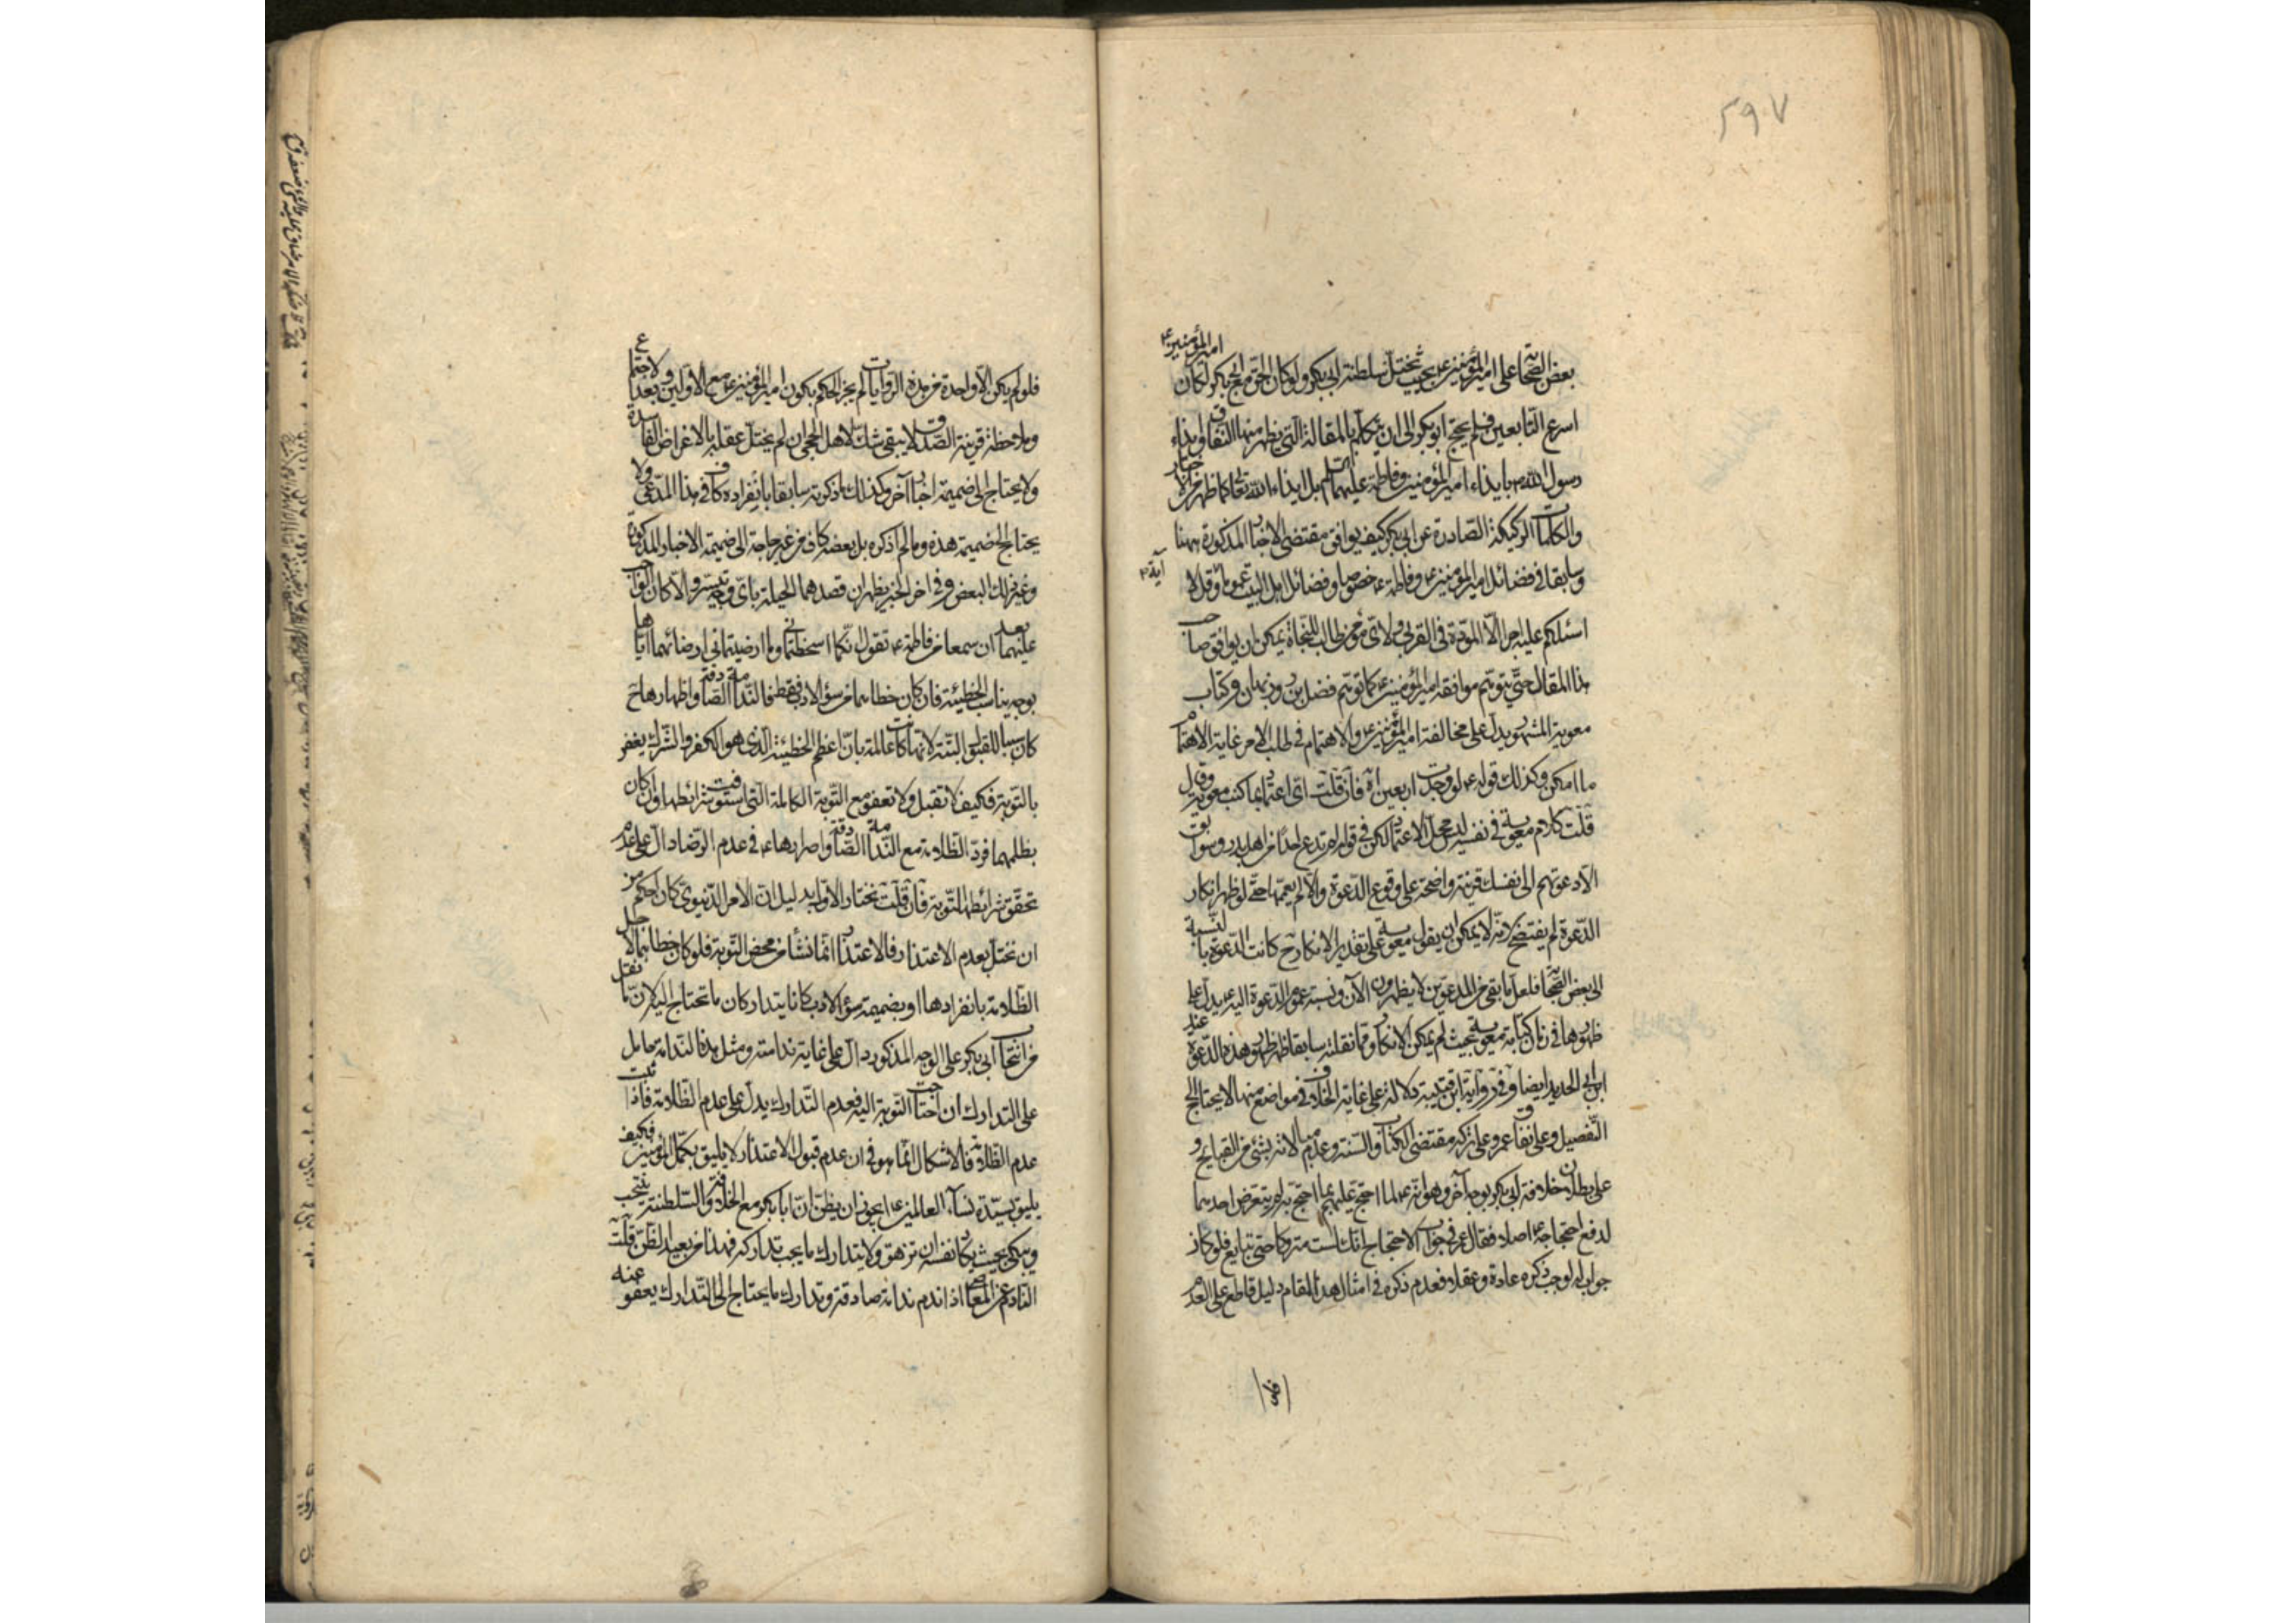 ٢٩٧
بعض الصحابة على امير المؤمنين ع بحيث تختل سلطنة ابي بكر ولو كان الحق مع ابي بكر لكان امير المؤمنين ع
اسرع التابعين فلم يحتج ابو بكر الى ان يتكلم بالمقالة التي يظهر منها النفاق وايذاء
رسول الله ص بايذاء امير المؤمنين وفاطمة عليهما السلم بل ايذاء الله تعالى كما ظهر من الاخبار
والكلمات الركيكة الصادرة عن ابي بكر كيف يوافق مقتضى الاخبار المذكورة ههنا
وسابقا في فضائل امير المؤمنين ع وفاطمة ع خصوصا وفضائل اهل البيت عموما وقل لا آية
اسئلكم عليه اجرا الا المودة في القربى ولا اي مؤمن طالب للنجاة يمكن ان يوافق صاحب
هذا المقال حتى يتوهم موافقة امير المؤمنين ع كما توهم فضل بن روزبهان وكتاب
معوية المشهور يدل على مخالفة امير المؤمنين ع والاهتمام في طلب الامر غاية الاهتمام
ما امكن وكذلك قوله ع لو وجدت اربعين فان قلت اي اعتماد بما كتب معوية وقول
قلت كلام معوية في نفسه ليس محل الاعتماد لكن في قوله لم تدع احدا من اهل بدر وسوابق
الا دعوتهم الى نفسك قرينة واضحة على وقوع الدعوة والا لم يعمها حتى لو ظهر انكار
الدعوة لم يفتضح لانه لا يمكن ان يقول معوية على تقدير الانكار ح كانت الدعوة بالنسبة
الى بعض الصحابة فلعل ما بقي من المدعوين لا يظهرون الآن ونسبة عموم الدعوة اليه ع يدل على
ظهورها في زمان كتابة معوية بحيث لم يمكن الانكار ومما نقلته سابقا ظهر ظهور هذه الدعوة عند
ابن ابي الحديد ايضا وفي رواية ابن قتيبة دلالة على غاية الخلاف في مواضع منها لا يحتاج الى
التفصيل وعلى نفاق عمر وعلى تركه مقتضى الكتاب والسنة وعدم مبالاته بشئ من القبايح و
على بطلان خلافة ابي بكر بوجه آخر وهو انه ع لما احتج عليهم بما احتج به لم يتعرض احد منهما
لدفع احتجاجه ع اصلا فقال عمر في جواب الاحتجاج انك لست متروكا حتى تبايع فلو كان
جواب له لوجب ذكره عادة وعقلا فعدم ذكره في امثال هذا المقام دليل قاطع على العدم
فلو
فلو لم يكن الا واحدة من هذه الروايات لم يجز الحكم بكون امير المؤمنين ع مع الاولين وبعد الاجتماع
وملاحظة قرينة الصدق لا يبقى شك لاهل الحجى ان لم يختل عقله بالاغراض الفاسدة
ولا يحتاج الى ضميمة اخبار آخر وكذلك ما ذكرته سابقا بانفراده كاف في هذا المدعى ولا
يحتاج الى ضميمة هذه وما لم اذكره بل بعضه كاف من غير حاجة الى ضميمة الاخبار المذكورة
وغير ذلك البعض وفي اخر الخبر يظهر ان قصدهما الحيلة باي وجه تيسر والا كان الواجب
عليهما بعد ان سمعا من فاطمة ع تقول انكما اسخطتماني وما ارضيتماني ارضائهما اياها
بوجه يناسب الخطيئة فان كان خطاهما من سؤ الادب فقط فالندامة الصادقة واظهارها ح
كان سببا للقبول البتة لانها كانت عالمة بان اعظم الخطيئة الذي هو الكفر والشرك يغفر
بالتوبة فكيف لا تقبل ولا تعفو مع التوبة الكاملة التي استوفيت شرائطها وان كان
بظلمهما فرد الظلامة مع الندامة الصادقة واصرارها ع في عدم الرضا دال على عدم
تحقق شرائط التوبة فان قلت نختار الاول بدليل ان الامر الدنيوي كان احكم من
ان تختل بعدم الاعتذار فالاعتذار انما نشأ من محض التوبة فلو كان خطاهما لاجل
الظلامة بانفرادها او بضميمة سؤ الادب كانا يتداركان ما تحتاج اليه لان ما نقل
من انتحاب ابي بكر على الوجه المذكور دال على غاية ندامته ومثل هذه الندامة حامل
على التدارك ان احتاجت التوبة اليه فعدم التدارك يدل على عدم الظلامة فاذا ثبت
عدم الظلامة فالاشكال انما هو في ان عدم قبول الاعتذار لا يليق بكمل المؤمنين فكيف
يليق بسيدة نساء العالمين ع ايجوز ان يظن ان ابا بكر مع الخلافة والسلطنة ينتحب
ويبكي بحيث يكاد نفسه ان تزهق ولا يتدارك ما يجب تداركه فهذا من بعيد الظن قلت
النادم عن المعاصي اذا ندم ندامة صادقة وتدارك ما يحتاج الى التدارك يعفو عنه